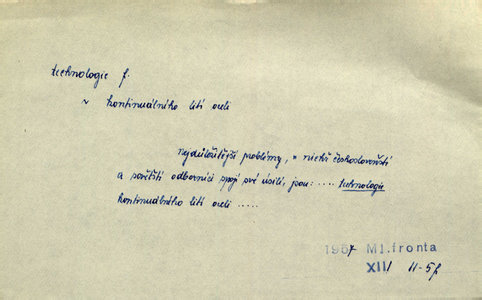 technologie f.
~ kontinuálního lití oceli
nejdůležitější problémy, v nichž českoslovenští
a sovětští odborníci spojí své úsilí, jsou: .... technologie
kontinuálního lití oceli .....
1957 Ml.fronta
XII/ 11-5f